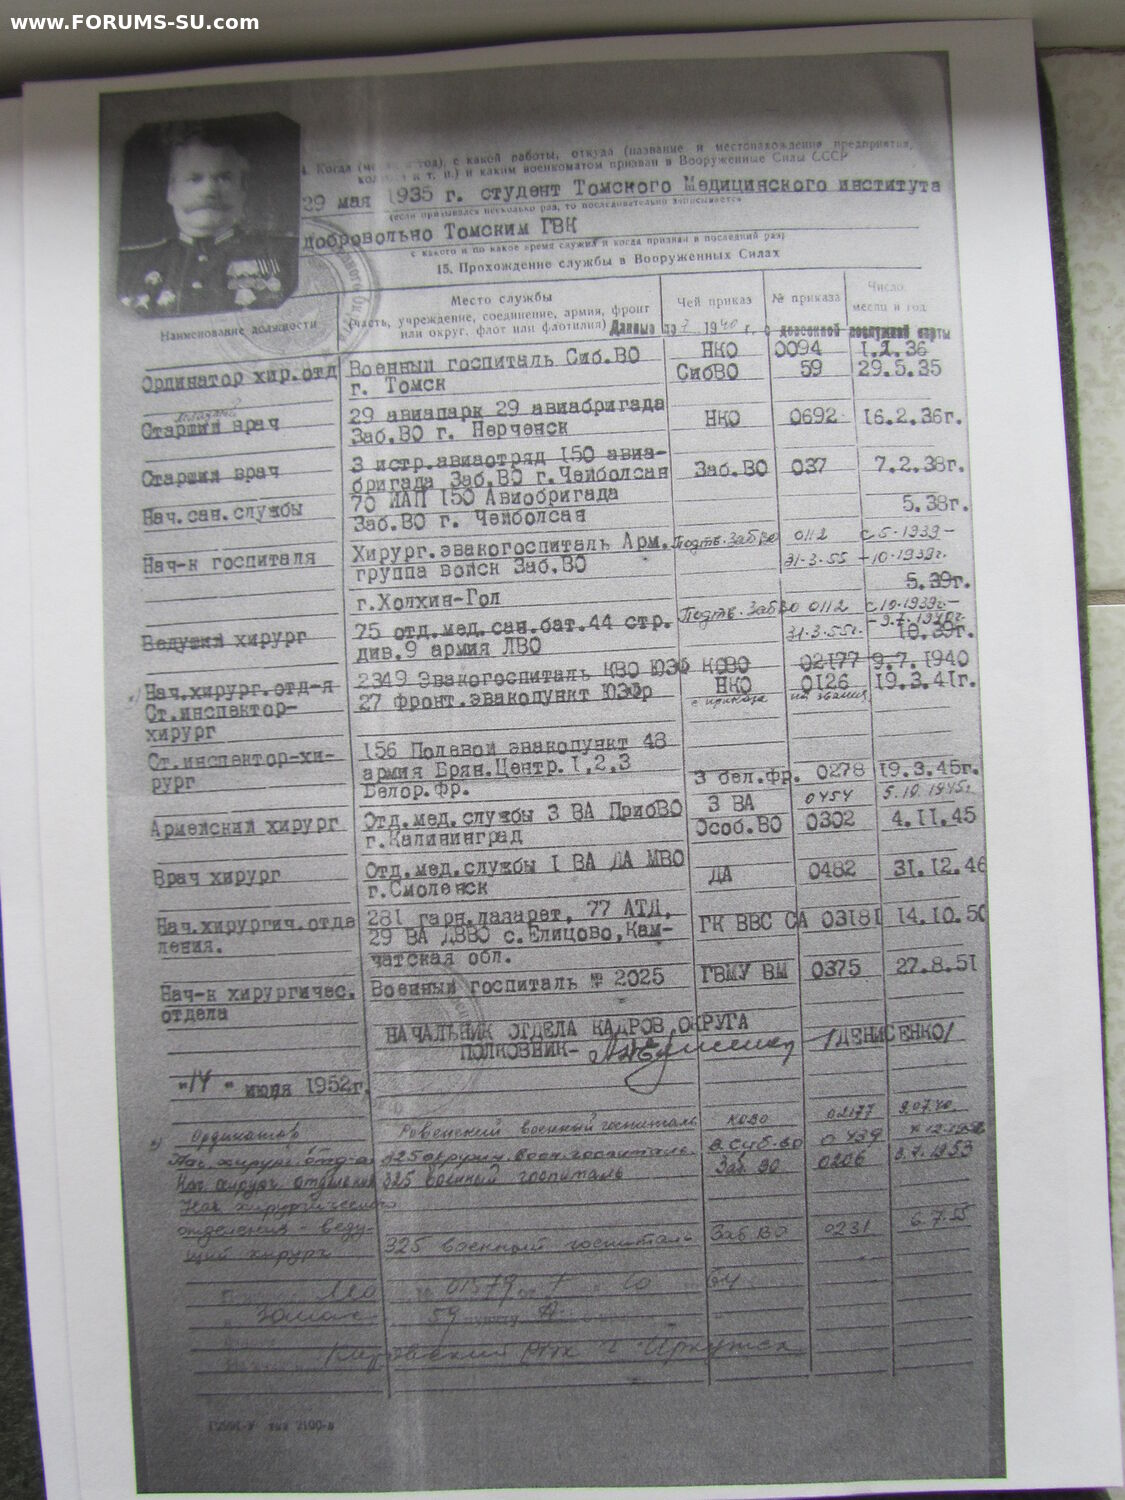 www.FORUMS-SU.com
с какой работы, откуда (название и местонахождение предприятия,
и т. п.) и каким военкоматом призван в Вооруженные Силы СССР
29 мая 1935 г. студент Томского Медицинского института
(если призывался несколько раз, то последовательно записывается
добровольно Томским ГВК
с какого и по какое время служил и когда призван в последний раз)
15. Прохождение службы в Вооруженных Силах
Наименование должности
Место службы
(часть, учреждение, соединение, армия, фронт
или округ, флот или флотилия)
Чей приказ
№ приказа
Число,
месяц и год
Данные до 1940 г. с послужной карты
Ординатор хир.отд
Военный госпиталь Сиб.ВО
г. Томск
НКО 0094 1.2.36
СибВО 59 29.5.35
Старший врач
29 авиапарк 29 авиабригада
Заб.ВО г. Нерченск
НКО 0692 16.2.36г.
Старший врач
3 истр.авиаотряд 150 авиа-
бригада Заб.ВО г.Чейболсан
Заб.ВО 037 7.2.38г.
Нач.сан.службы
70 ИАП 150 Авиобригада
Заб.ВО г. Чейболсан
5.38г.
Нач-к госпиталя
Хирург.эвакогоспиталь Арм.
группа войск Заб.ВО
г.Холхин-Гол
Подтв. ЗабВО 0112 с 5-1939-
31-3-55 -10-1939г.
5.39г.
Ведущий хирург
75 отд.мед.сан.бат.44 стр.
див.9 армия ЛВО
Подтв. ЗабВО 0112 с 10.1939г.-
31-3-55г.
10.39г.
Нач.хирург.отд-я
2349 Эвакогоспиталь КВО ЮЗФ
КОВО 02177 9.7.1940
Ст.инспектор-
хирург
27 фронт.эвакопункт ЮЗФр
НКО 0126 19.3.41г.
Ст.инспектор-хи-
рург
156 Полевой эвакопункт 48
армия Брян.Центр.1,2,3
Белор.фр.
3 бел.фр. 0278 19.3.45г.
Армейский хирург
Отд.мед.службы 3 ВА ПрибВО
г.Калининград
3 ВА 0454 5.10.1945г.
Особ.ВО 0302 4.11.45
Врач хирург
Отд.мед.службы 1 ВА ДА МВО
г.Смоленск
ДА 0482 31.12.46
Нач.хирургич.отде
ления.
281 гарн.лазарет, 77 АТД,
29 ВА ДВВО с.Елицово,Кам-
чатская обл.
ГК ВВС СА 03181 14.10.50
Нач-к хирургичес.
отдела
Военный госпиталь № 2025
ГВМУ ВМ 0375 27.8.51
НАЧАЛЬНИК ОТДЕЛА КАДРОВ ОКРУГА
ПОЛКОВНИК- /ДЕНИСЕНКО/
"14" июня 1952г.
Ординатор Ровенский военный госпиталь КОВО 02177 9.07.40
Нач. хирург. отд-я 325 окружн. воен. госпиталь В.Сиб.ВО 0439
Нач. хирург. отделения 325 военный госпиталь Заб. ВО 0206
Нач. хирургического
отделения - веду-
щий хирург
325 военный госпиталь Заб ВО 0231 6.7.55
01579
59
Кировский РВК г. Иркутска